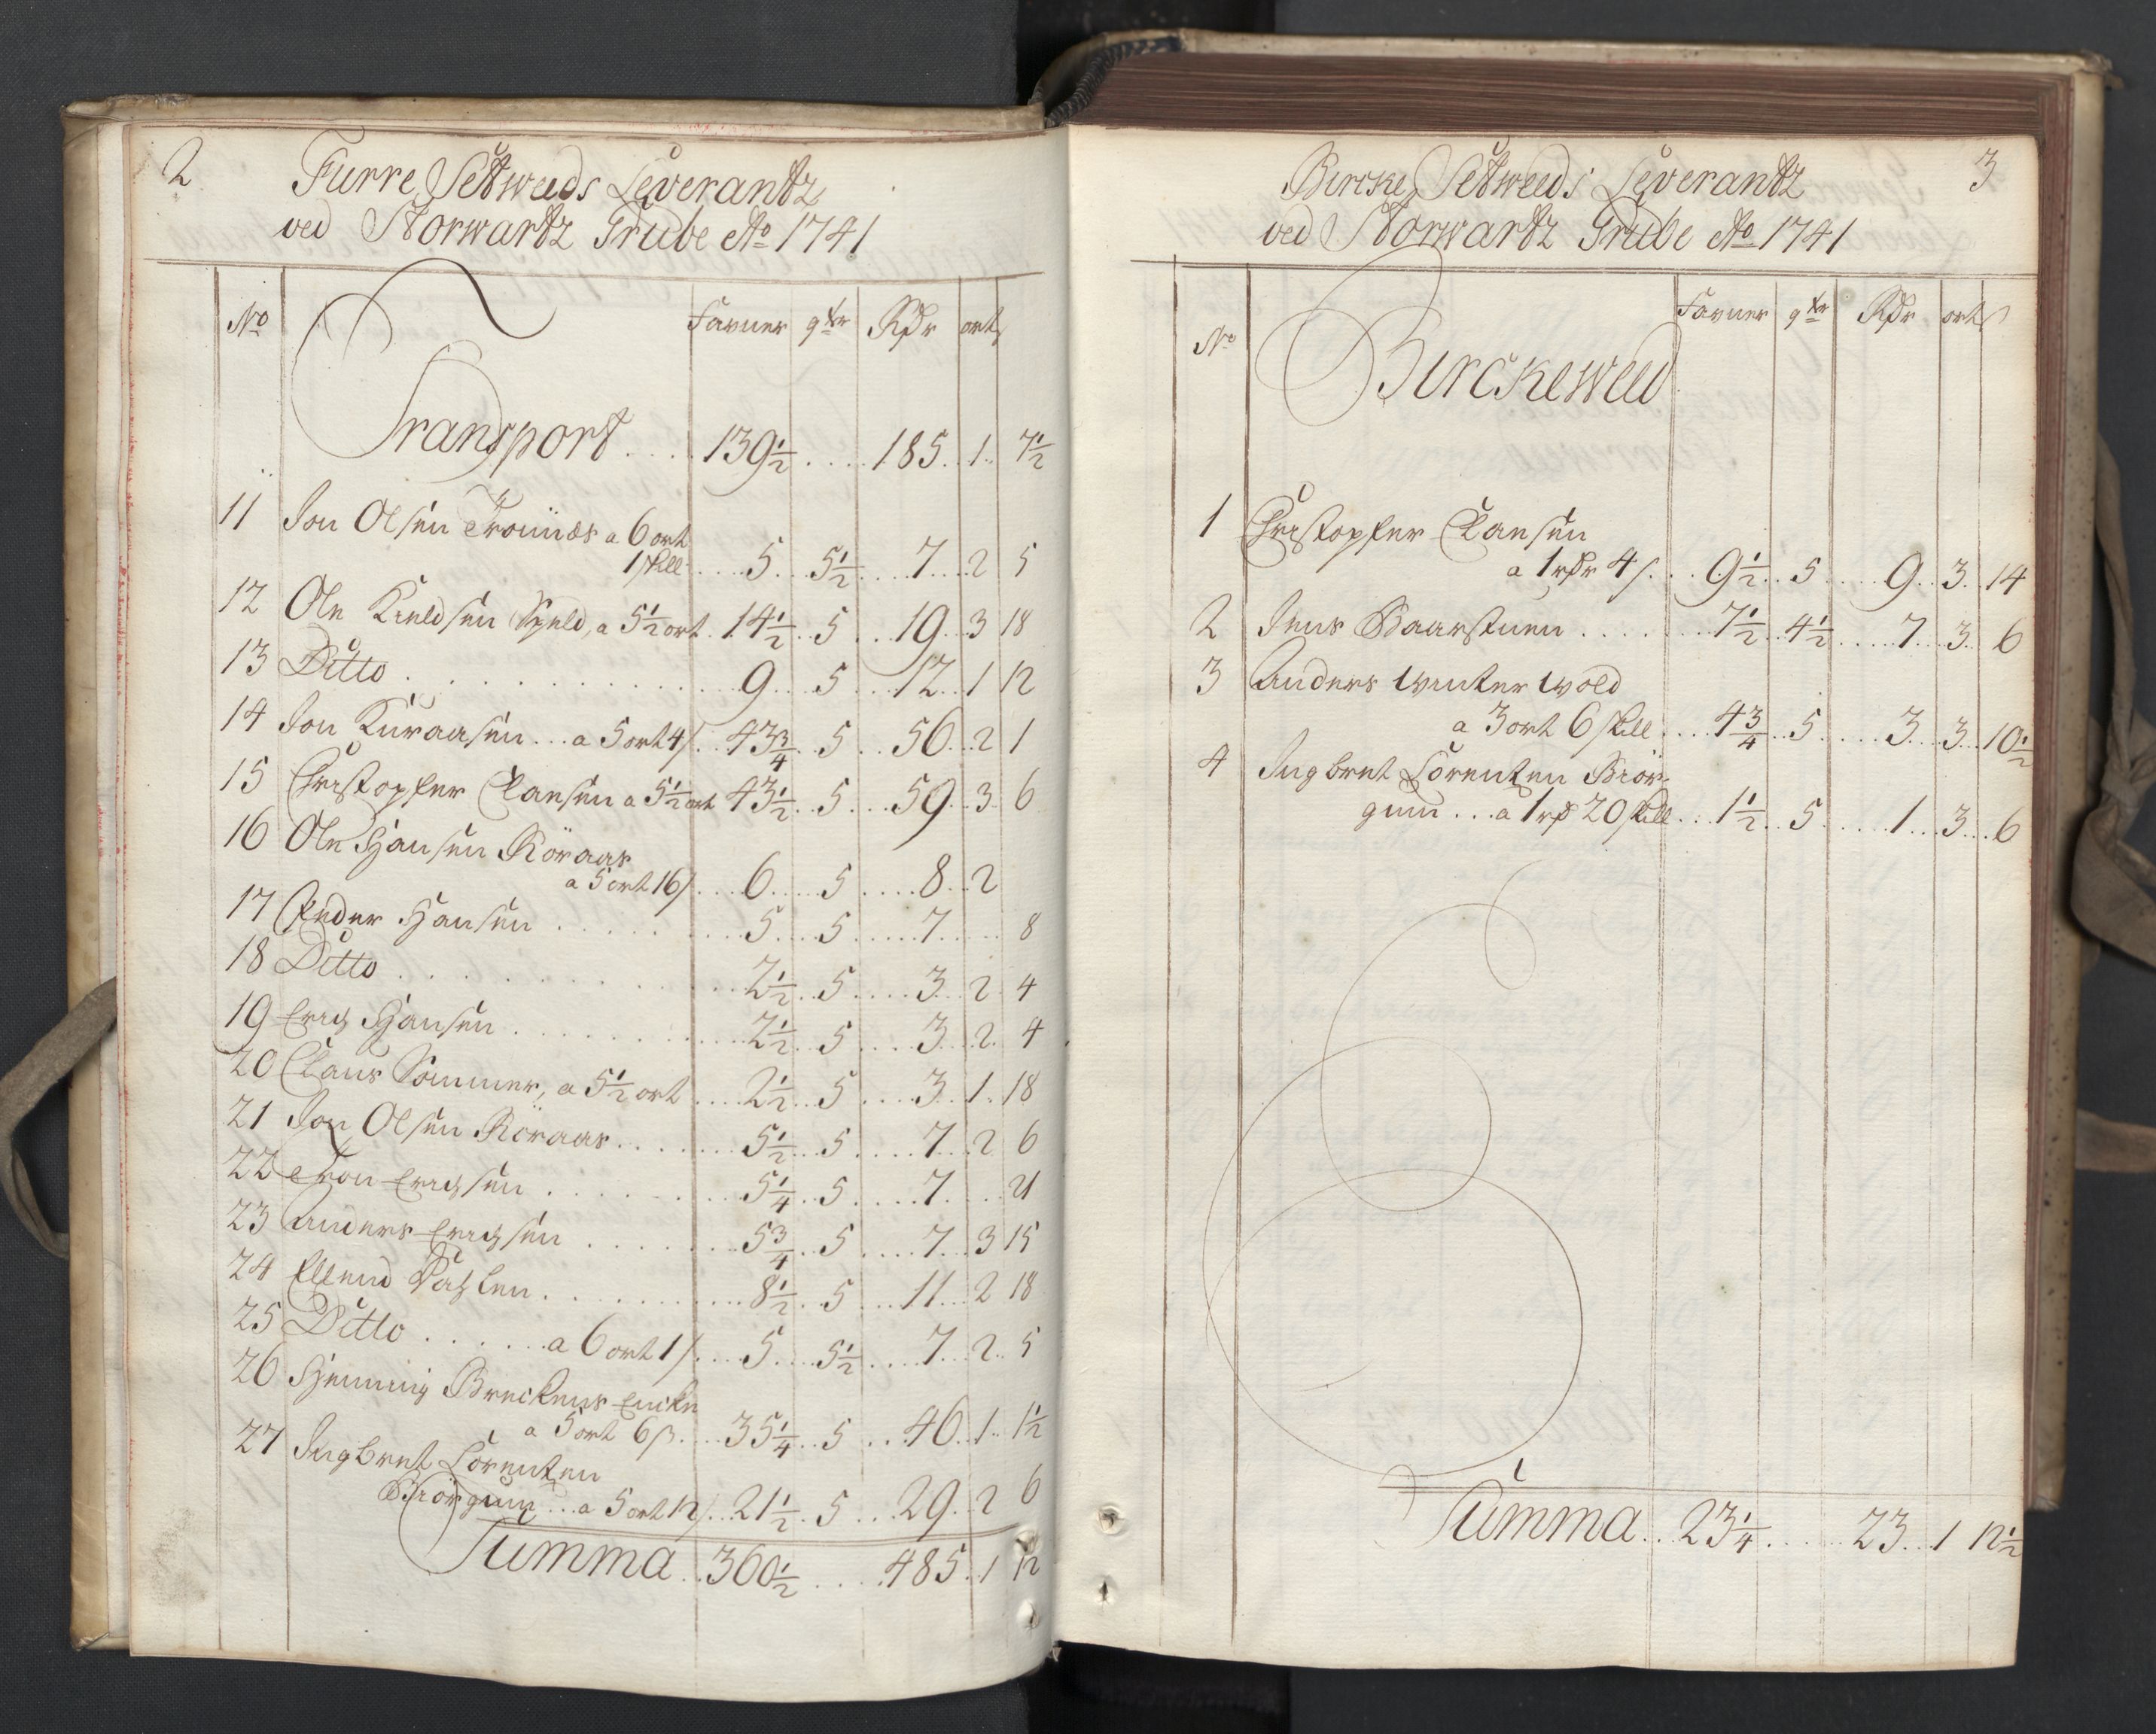 2
Furre Setweeds Leverantz
ved Storwartz Grube Ao 1741
No Favner qtr Rdr ort s
Transport .... 139½ .... 185 .. 1 .. 7½
11 Jon Olsen Tronnæs a 6 ort
1 skill .... 5 .. 5½ .... 7 .... 2 5
12 Ole Kieldsen Sneld, a 5½ ort . 14½ .. 5 ... 19 .. 3 18
13 Ditto ........ 9 .... 5 ... 12 .. 1 12
14 Jon Kuraasen ... a 5 ort 4 s .. 43¾ .. 5 .. 56 .. 2 1
15 Christopher Clausen a 5½ ort 43½ .. 5 ... 59 .. 3 6
16 Ole Hansen Röraas
a 5 ort 16 s .... 6 .... 5 .... 8 .. 2
17 Peder Hansen ........ 5 .... 5 ..... 7 ..... 8
18 Ditto ........ 2½ .. 5 .... 3 .. 2 4
19 Erich Hansen ........ 2½ .. 5 .... 3 .. 2 4
20 Claus Sommer, a 5½ ort .... 2½ .. 5 .... 3 .. 1 .. 18
21 Jon Olsen Röraas ....... 5½ .. 5 .... 7 .. 2 6
22 Tron Erichsen ........ 5¼ .. 5 .... 7 .... 21
23 Anders Erichsen ....... 5¾ .. 5 .... 7 .. 3 15
24 Ellend ........ 8½ .. 5 ... 11 .. 2 18
25 Ditto ...... a 6 ort 1 s .... 5 .... 5½ .... 7 .. 2 .. 5
26 Henning Breckens Encke
a 5 ort 6 s .... 35¼ .. 5 ... 46 .. 1 .. 1½
27 Ingbret Lorentzen
Biörgum ... a 5 ort 12 s ... 21½ .. 5 ... 29 .. 2 6
Summa .. 360½ .... 485 .. 1 12
3
Bircke Setweeds Leverantz
ved Storwartz Grube Ao 1741
No Favner qtr Rdr ort s
Birckeweed
1 Christopher Clausen
a 1 rdr 4 s ... 9½ .. 5 .... 9 .. 3 .. 14
2 Jens Baarstuen ....... 7½ .. 4½ ..... 7 ... 3 .. 6
3 Anders Winterwold
a 3 ort 6 skill .... 4¾ .. 5 .... 3 ... 3 ... 10½
4 Ingbret Lorentzen Biör-
gum ... a 1 rd 20 skill ... 1½ .. 5 ..... 1 ... 3 ... 6
Summa .. 23¼ ...... 23 .. 1 12½